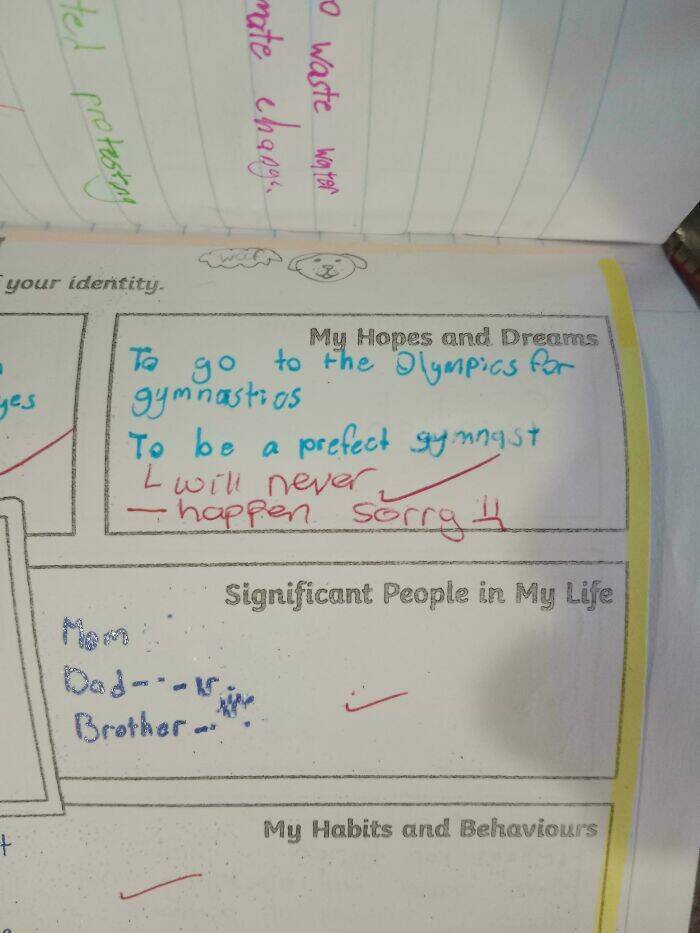 o waste water
mate change.
ted protesting
your identity.
woof
My Hopes and Dreams
To go to the Olympics for
gymnastics
yes
To be a prefect gymnast
will never
happen sorry !!
Significant People in My Life
Mom
Dad
Brother
My Habits and Behaviours